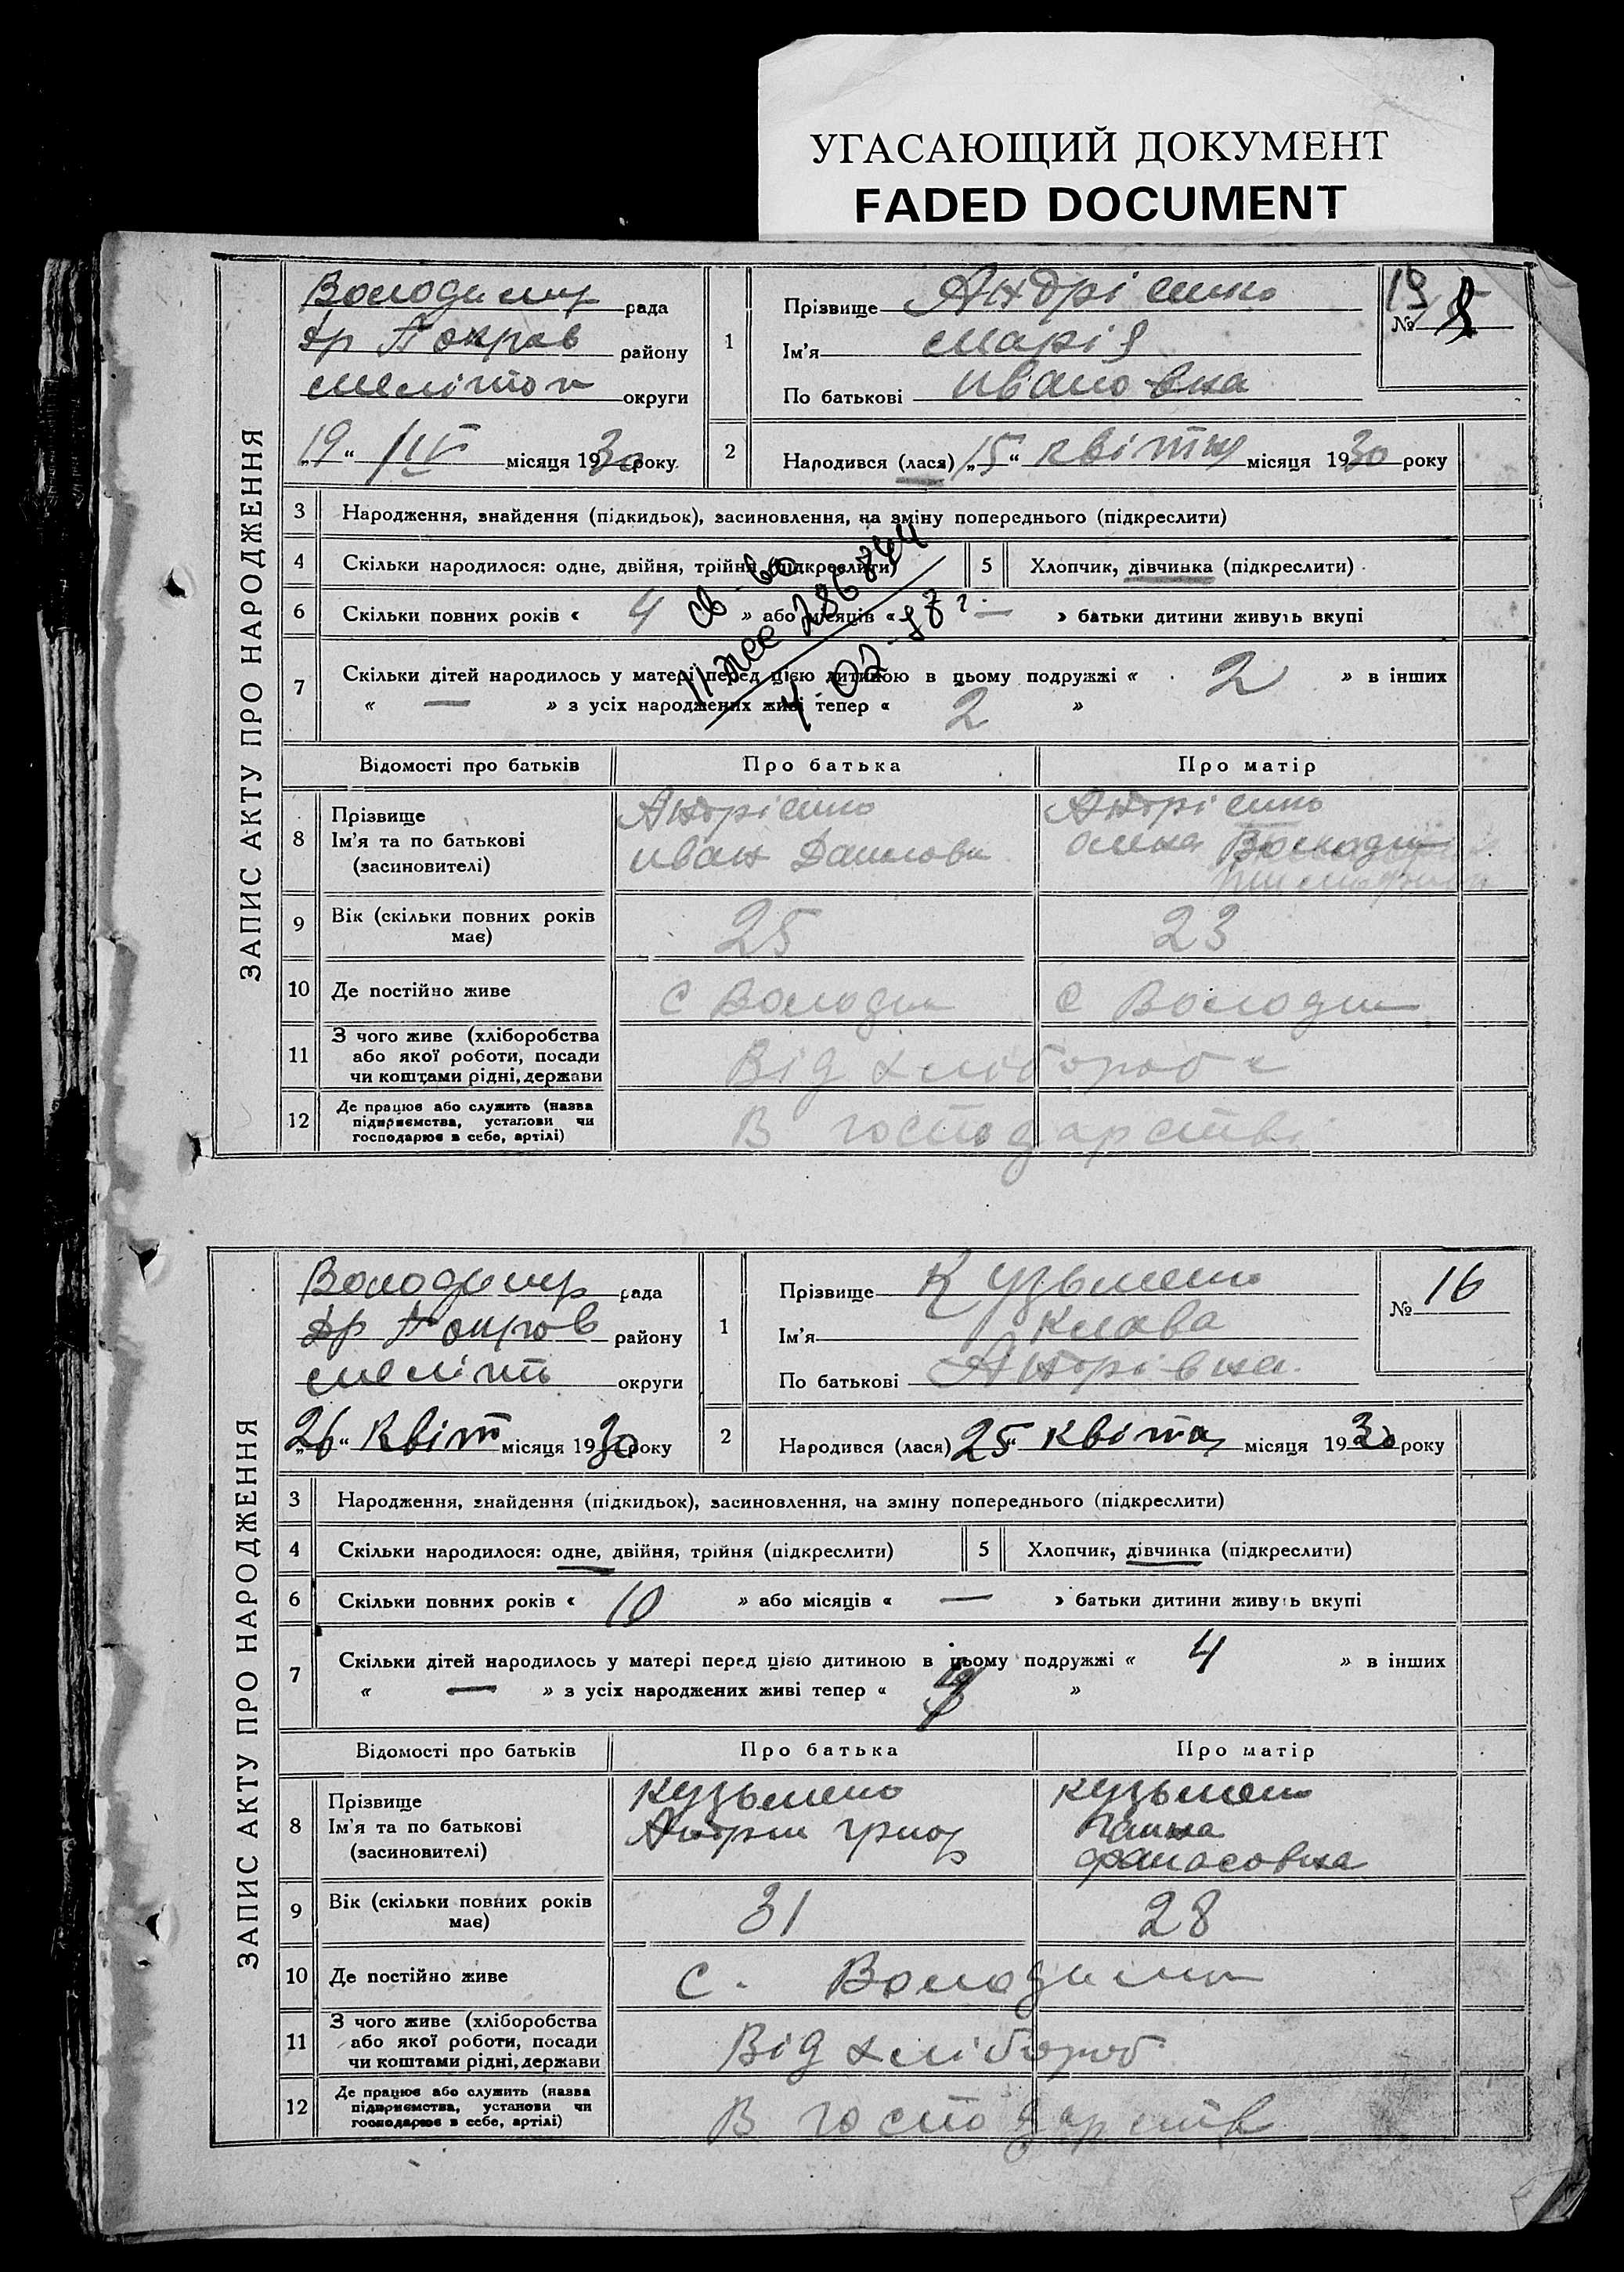 УГАСАЮЩИЙ ДОКУМЕНТ
FADED DOCUMENT
ЗАПИС АКТУ ПРО НАРОДЖЕННЯ
Володимир рада
др Покров району
меліtоп округи
„19“ /IV місяця 1930 року.
1
Прізвище Андрієнко
Ім'я Марія
По батькові Ивановна
№ 15
2
Народився (лася) „15“ квітня місяця 1930 року
3 Народження, знайдення (підкидьок), засиновлення, на зміну попереднього (підкреслити)
4 Скільки народилося: одне, двійня, трійня (підкреслити) 5 Хлопчик, дівчинка (підкреслити)
6 Скільки повних років « 4 » або місяців « — » батьки дитини живуть вкупі
7 Скільки дітей народилось у матері перед цією дитиною в цьому подружжі « 2 » в інших
« — » з усіх народжених живі тепер « 2 »
св-во
286744
4-02-87 г.
Відомості про батьків Про батька Про матір
8 Прізвище
Ім'я та по батькові
(засиновителі)
Андрієнко
Иван Данилови
Андрієнко
9 Вік (скільки повних років
має)
25 23
10 Де постійно живе С Володим С Володим
11 З чого живе (хліборобства
або якої роботи, посади
чи коштами рідні, держави
Від хлібороб
12 Де працює або служить (назва
підприємства, установи чи
господарює в себе, артілі)
В господарстві
ЗАПИС АКТУ ПРО НАРОДЖЕННЯ
Володимир рада
др Покров району
меліт округи
„26“ Квіт місяця 1930 року
1
Прізвище Кузьмено
Ім'я Клава
По батькові Андрівна
№ 16
2
Народився (лася) „25“ квітня місяця 1930 року
3 Народження, знайдення (підкидьок), засиновлення, на зміну попереднього (підкреслити)
4 Скільки народилося: одне, двійня, трійня (підкреслити) 5 Хлопчик, дівчинка (підкреслити)
6 Скільки повних років « 10 » або місяців « — » батьки дитини живуть вкупі
7 Скільки дітей народилось у матері перед цією дитиною в цьому подружжі « 4 » в інших
« — » з усіх народжених живі тепер « »
Відомості про батьків Про батька Про матір
8 Прізвище
Ім'я та по батькові
(засиновителі)
Кузьмено
Андрии григ
Кузьмено
Ганна
Фанасовна
9 Вік (скільки повних років
має)
31 28
10 Де постійно живе с. Володимир
11 З чого живе (хліборобства
або якої роботи, посади
чи коштами рідні, держави
Від хлібороб
12 Де працює або служить (назва
підприємства, установи чи
господарює в себе, артілі)
В господарств